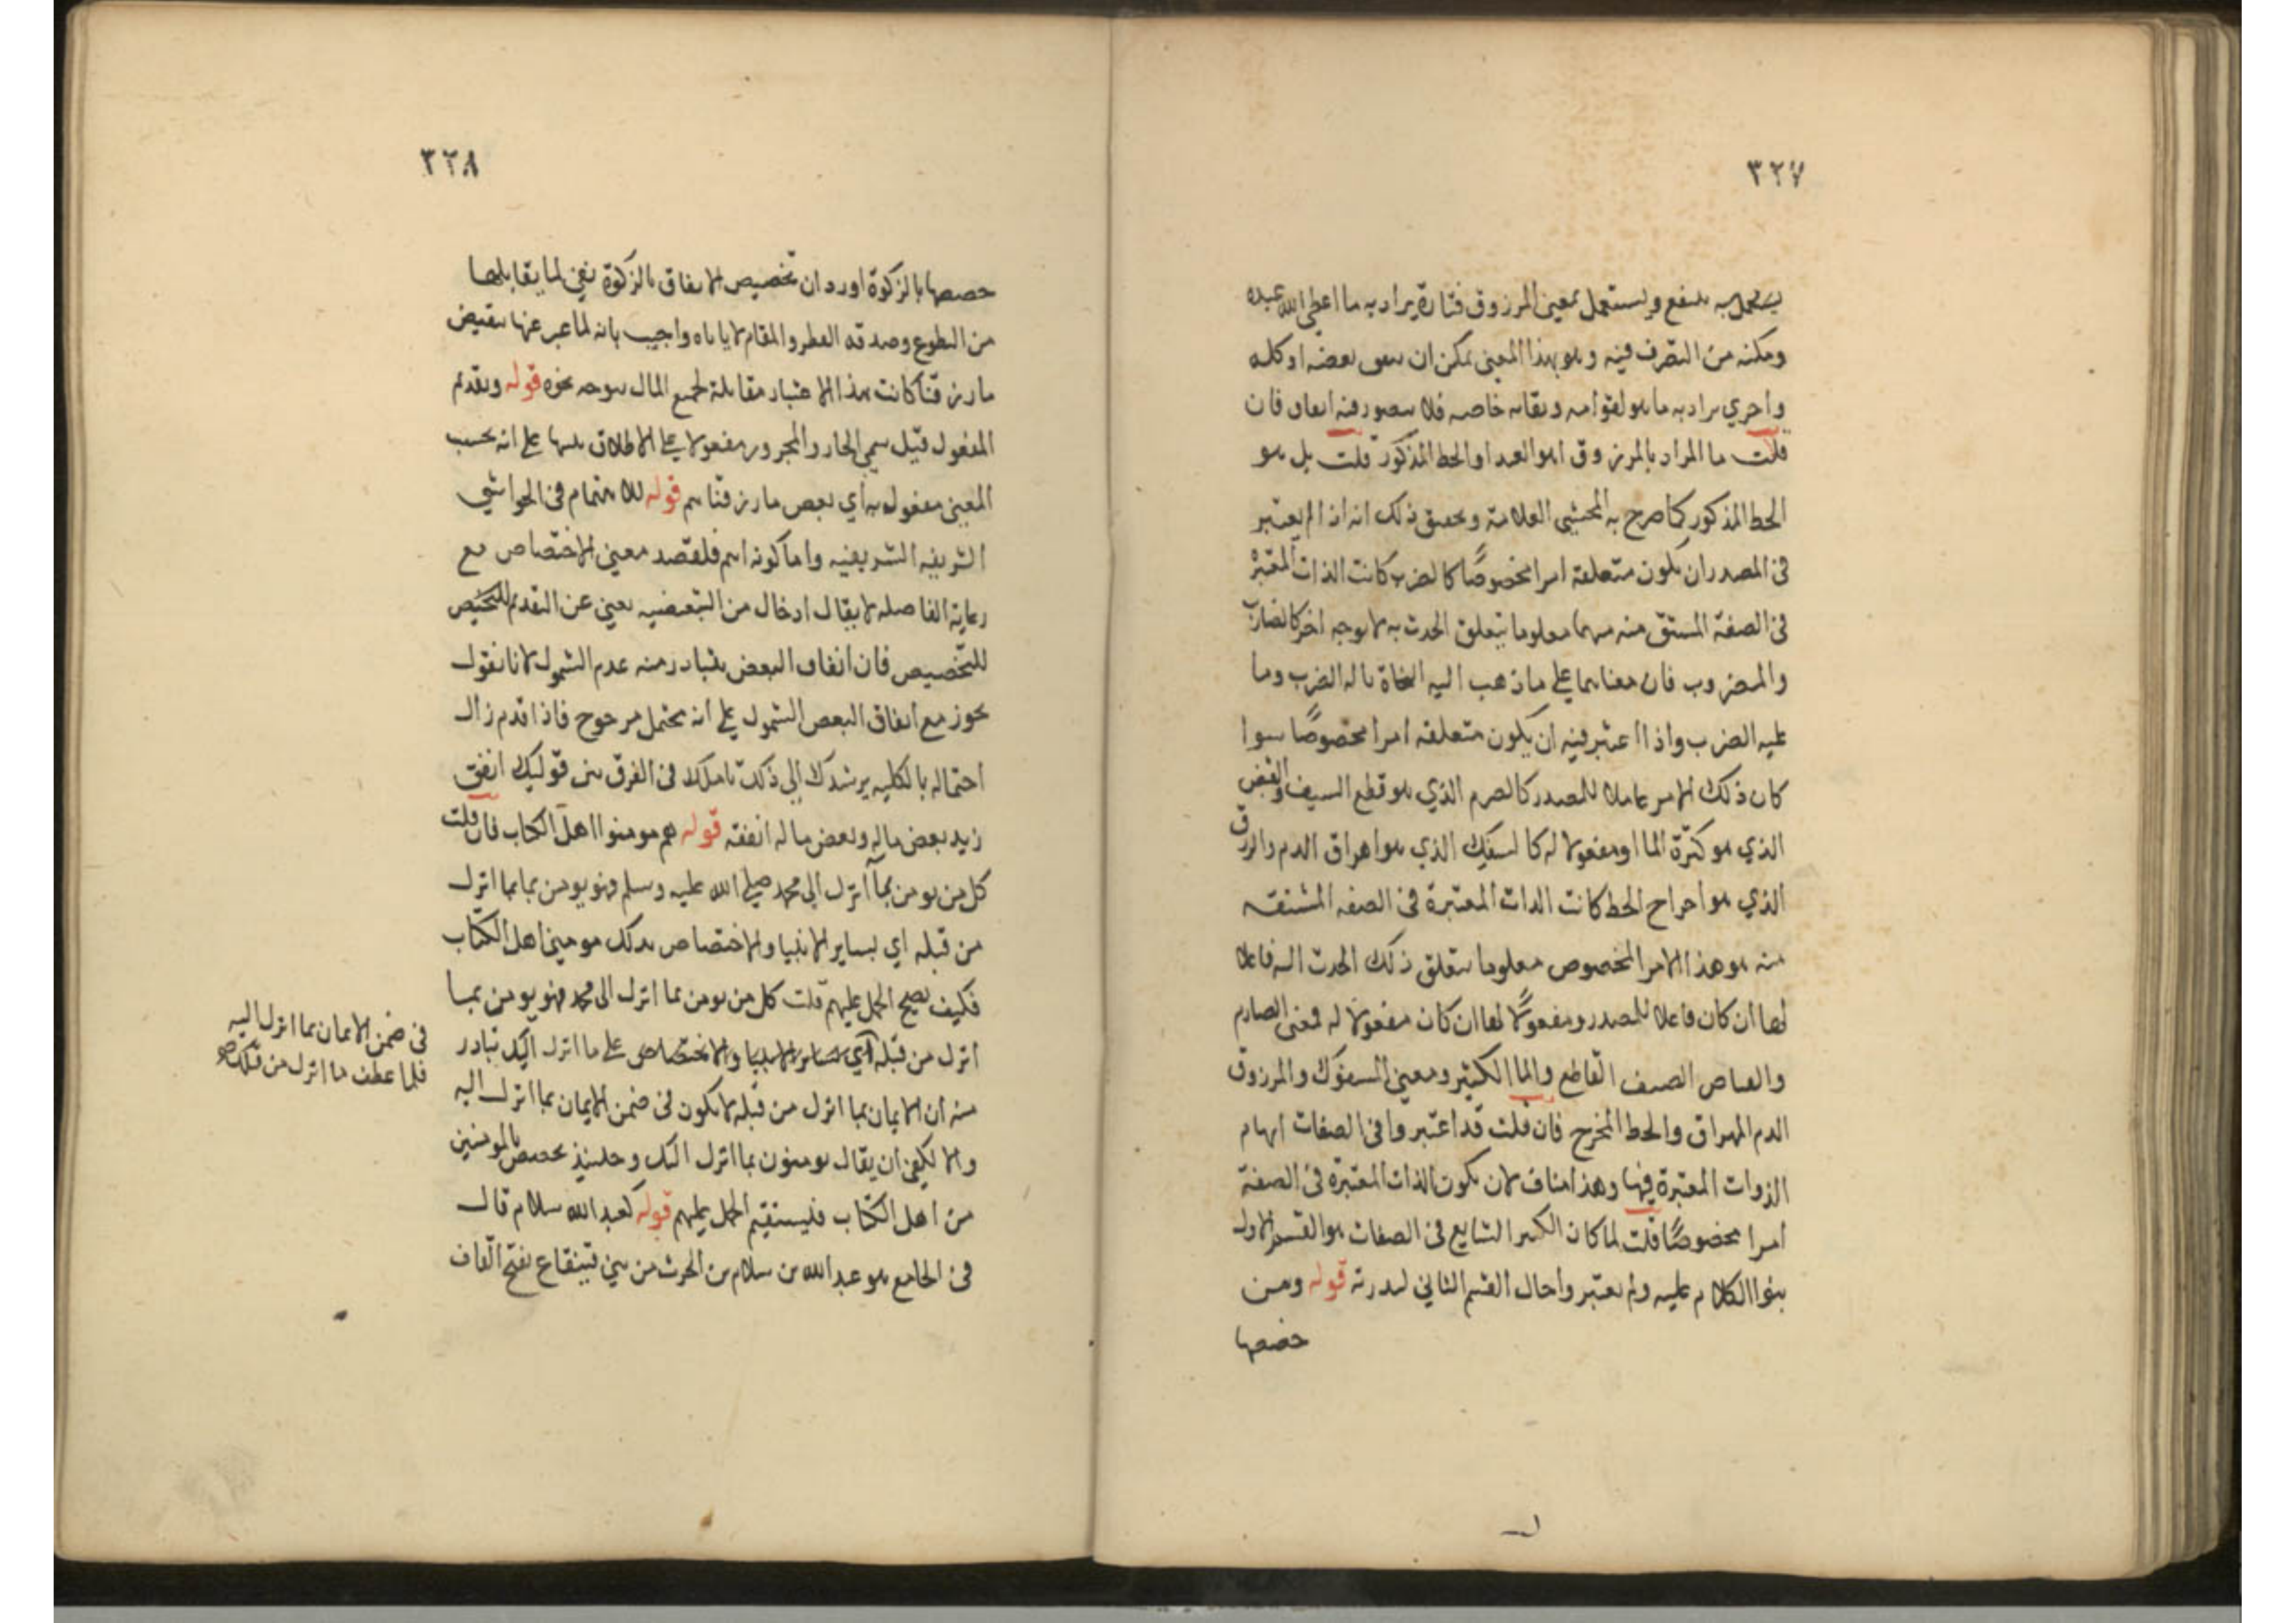 ٣٢٧
به ينتفع ويستعمل بمعنى المرزوق فتارة يراد به ما اعطى الله عبده
ومكنه من التصرف فيه وهو بهذا المعنى يمكن ان ينفق بعضه او كله
واخري يراد به ما هو لقوامه وبقائه خاصه فلا يتصور فيه انفاق فان
قلت ما المراد بالمرزوق اهو العبد او الحظ المذكور قلت بل هو
الحظ المذكور كما صرح به المحشي العلامة وتحقيق ذلك انه اذا لم يعتبر
في المصدر ان يكون متعلقه امرا مخصوصًا كالضرب كانت الذات المعتبرة
في الصفة المشتق منه مبهما معلوما بتعلق الحدث به لا بوجه اخر كالضارب
والمضروب فان معناهما على ما ذهب اليه النحاة ما له الضرب وما
عليه الضرب واذا اعتبر فيه ان يكون متعلقه امرا مخصوصًا سوا
كان ذلك الامر عاملا للمصدر كالصرم الذي هو قطع السيف والفيض
الذي هو كثرة الما او مفعولا له كالسفك الذي هو اهراق الدم والرزق
الذي هو اخراج الحظ كانت الذات المعتبرة في الصفه المشتقه
منه هو هذا الامر المخصوص معلوما بتعلق ذلك الحدث اليه فاعلا
لها ان كان فاعلا للمصدر ومفعولًا لها ان كان مفعولا له فمعنى الصارم
والفياض السيف القاطع والما الكثير ومعنى المسفوك والمرزوق
الدم المهراق والحظ المخرج فان قلت قد اعتبروا في الصفات ابهام
الذوات المعتبرة فيها وهذا مناف لان يكون الذات المعتبرة في الصفة
امرا مخصوصًا قلت لما كان الكثير الشايع في الصفات هو القسم الاول
بنوا الكلام عليه ولم يعتبروا حال القسم الثاني لندرته قوله ومن
خصصها
٣٢٨
خصصها بالزكوة اورد ان تخصيص الانفاق بالزكوة نفي لما يقابلها
من التطوع وصدقه الفطر والمقام لا ياباه واجيب بانه لما عبر عنها
مارزقنا كانت بهذا الاعتبار مقابلة لجميع المال قوله وتقديم
المفعول قيل سمي الجار والمجرور مفعولا على الاطلاق تنبيها على انه بحسب
المعنى مفعول به اي بعض مارزقناهم قوله للاهتمام في الحواشي
الشريفه الشريفيه واما كونه اهم فلقصد معنى الاختصاص مع
رعاية الفاصله لا يقال ادخال من التبعضيه يغني عن التقديم للتخصيص
للتخصيص فان انفاق البعض يتبادر منه عدم الشمول لانا نقول
يجوز مع انفاق البعض الشمول على انه محتمل مرجوح فاذا قدم زال
احتماله بالكليه يرشدك الى ذلك تاملك في الفرق بين قوليك انفق
زيد بعض ماله وبعض ماله انفقه قوله هم مومنوا اهل الكتاب فان قلت
كل من يومن بما انزل الى محمد صلى الله عليه وسلم فهو يومن بما انزل
من قبله اي بساير الانبيا والاختصاص بذلك مومني اهل الكتاب
فكيف يصح الحمل عليهم قلت كل من يومن بما انزل الى محمد فهو يومن بما
انزل من قبله اي بساير الانبيا والاختصاص على ما انزل اليك تبادر
منه ان الايمان بما انزل من قبله لا يكون في ضمن الايمان بما انزل اليه
والا لكفى ان يقال يومنون بما انزل اليك وحينئذ يختص بالمومنين
من اهل الكتاب فليستقيم الحمل عليهم قوله كعبد الله سلام قال
في الجامع هو عبد الله بن سلام بن الحرث من بني قينقاع بفتح القاف
في ضمن الايمان بما انزل اليه
فلما عطف ما انزل من قبلك